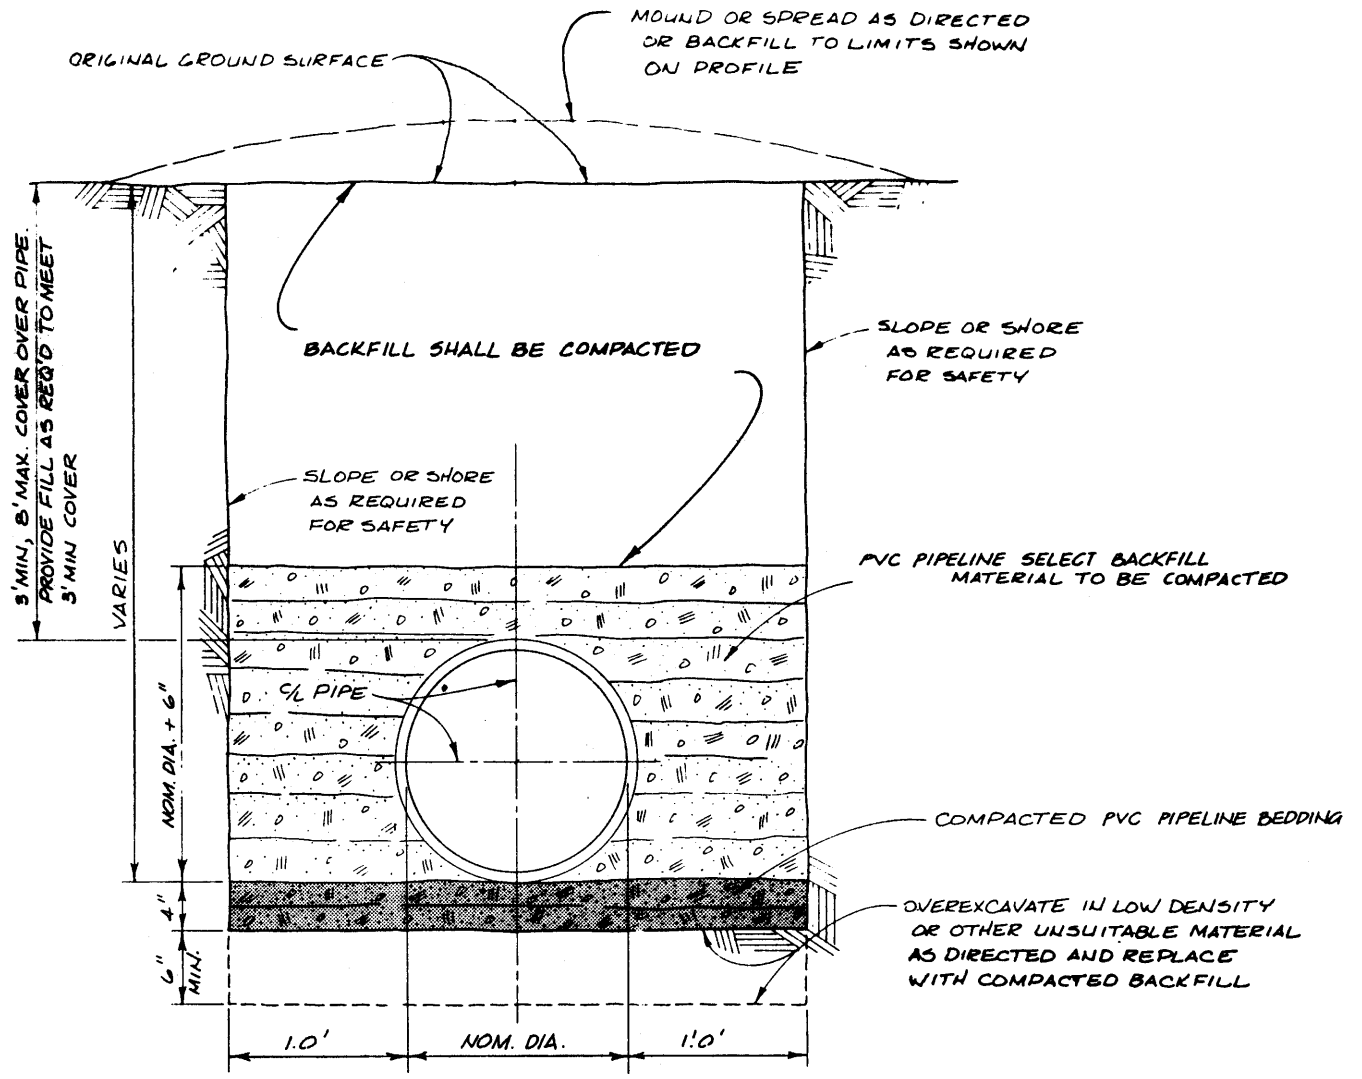 MOUND OR SPREAD AS DIRECTED
OR BACKFILL TO LIMITS SHOWN
ON PROFILE
ORIGINAL GROUND SURFACE
3' MIN, 8' MAX. COVER OVER PIPE.
PROVIDE FILL AS REQ'D TO MEET
3' MIN COVER
VARIES
BACKFILL SHALL BE COMPACTED
SLOPE OR SHORE
AS REQUIRED
FOR SAFETY
SLOPE OR SHORE
AS REQUIRED
FOR SAFETY
PVC PIPELINE SELECT BACKFILL
MATERIAL TO BE COMPACTED
C/L PIPE
NOM. DIA. + 6"
COMPACTED PVC PIPELINE BEDDING
4"
OVEREXCAVATE IN LOW DENSITY
OR OTHER UNSUITABLE MATERIAL
AS DIRECTED AND REPLACE
WITH COMPACTED BACKFILL
6"
MIN.
1.0'
NOM. DIA.
1.0'